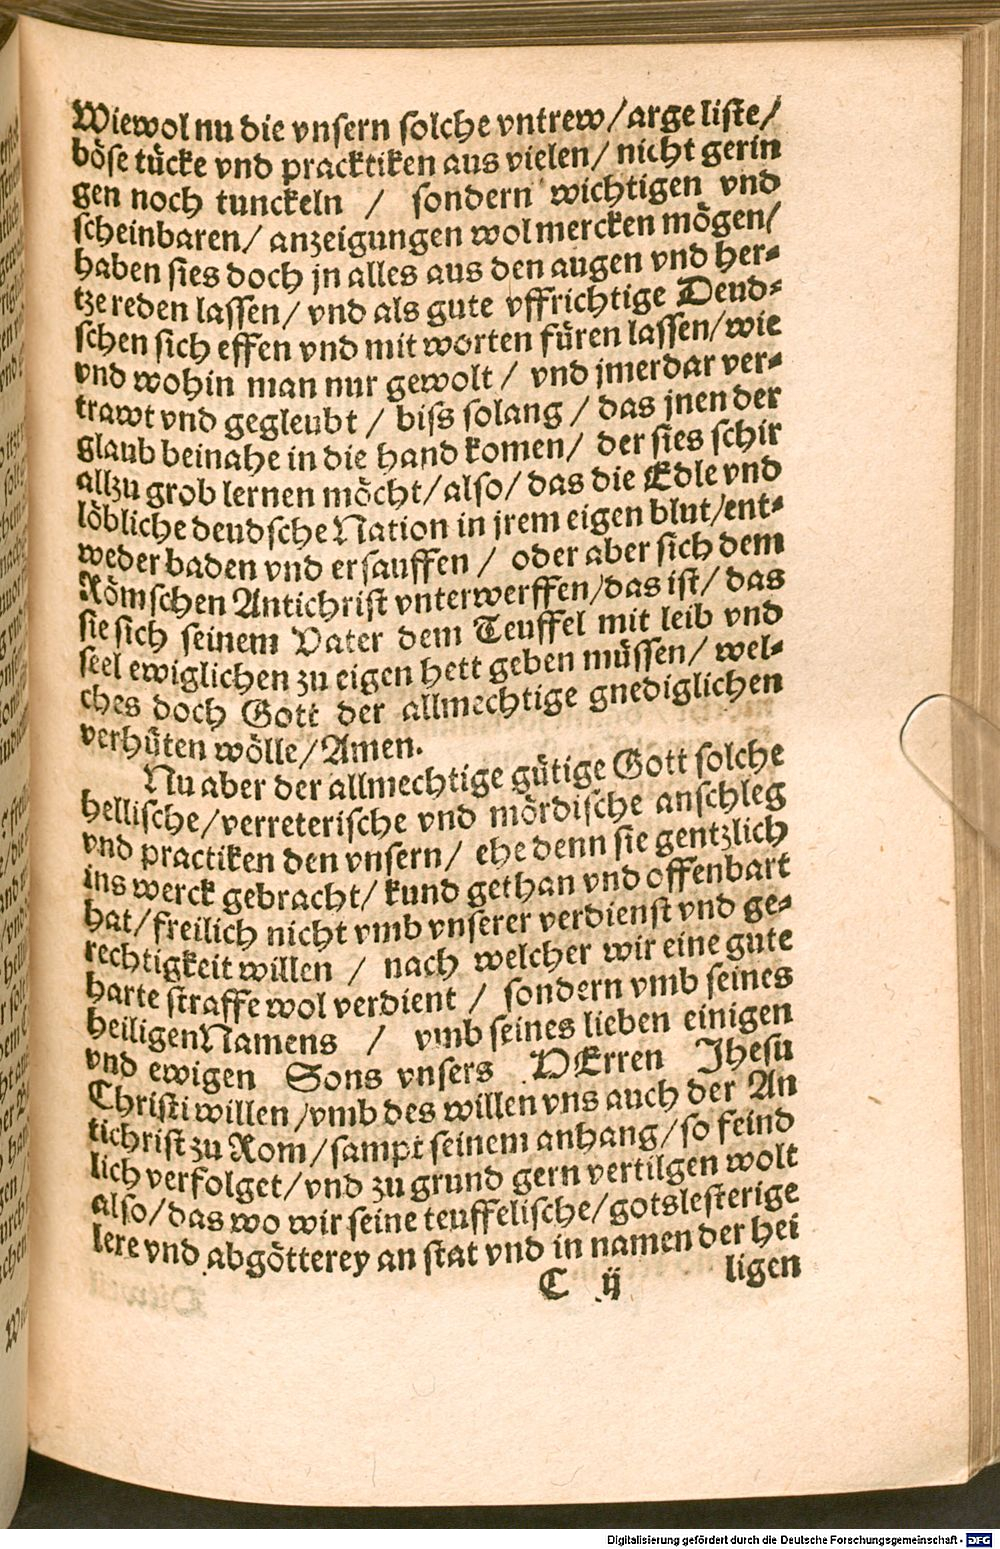 Wiewol nu die vnsern solche vntrew/arge liste/
böse tücke vnd pracktiken aus vielen/ nicht gerin
gen noch tunckeln / sondern wichtigen vnd
scheinbaren/ anzeigungen wol mercken mögen/
haben sies doch jn alles aus den augen vnd her⸗
tze reden lassen/ vnd als gute vffrichtige Deud⸗
schen sich effen vnd mit worten füren lassen/wie
vnd wohin man nur gewolt / vnd jmerdar ver⸗
trawt vnd gegleubt / biss solang / das jnen der
glaub beinahe in die hand komen/ der sies schir
allzu grob lernen möcht/also/ das die Edle vnd
löbliche deudsche Nation in jrem eigen blut/ent⸗
weder baden vnd ersauffen / oder aber sich dem
Römschen Antichrist vnterwerffen/das ist/ das
sie sich seinem Vater dem Teuffel mit leib vnd
seel ewiglichen zu eigen hett geben müssen/ wel⸗
ches doch Gott der allmechtige gnediglichen
verhüten wölle/Amen.
Nu aber der allmechtige gütige Gott solche
hellische/verreterische vnd mördische anschleg
vnd practiken den vnsern/ ehe denn sie gentzlich
ins werck gebracht/ kund gethan vnd offenbart
hat/freilich nicht vmb vnserer verdienst vnd ge⸗
rechtigkeit willen / nach welcher wir eine gute
harte straffe wol verdient / sondern vmb seines
heiligen Namens / vmb seines lieben einigen
vnd ewigen Sons vnsers HErren Jhesu
Christi willen /vmb des willen vns auch der An
tichrist zu Rom/sampt seinem anhang/so feind
lich verfolget/vnd zu grund gern vertilgen wolt
also/das wo wir seine teuffelische/gotslesterige
lere vnd abgötterey an stat vnd in namen der hei
C ij ligen
Digitalisierung gefördert durch die Deutsche Forschungsgemeinschaft - DFG